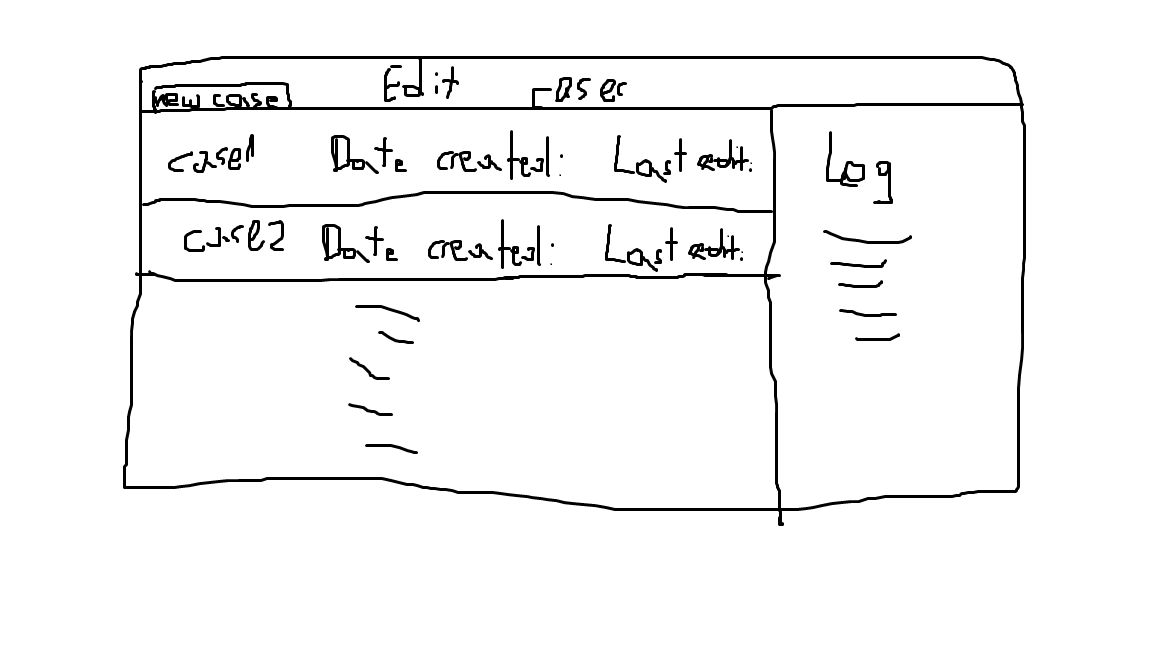 new case Edit
case1 Date created: Last edit:
case2 Date created: Last edit:
Log